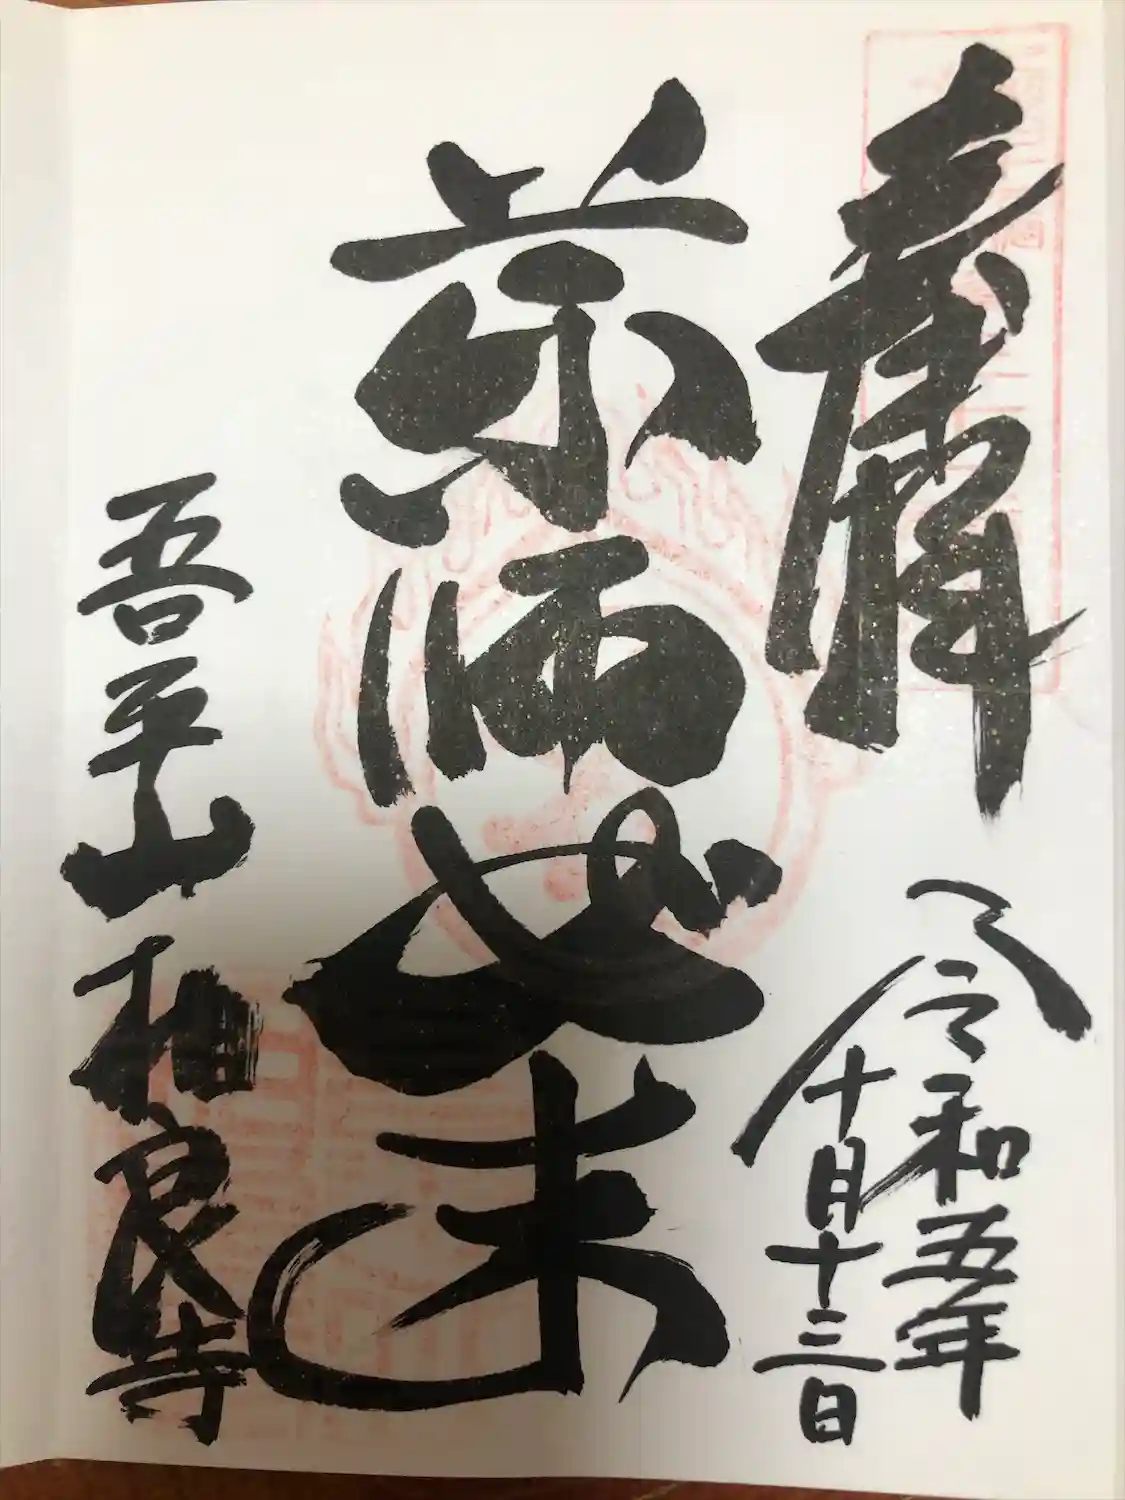 奉拝
令和五年
十月十三日
薬師如来
吾平山相良寺